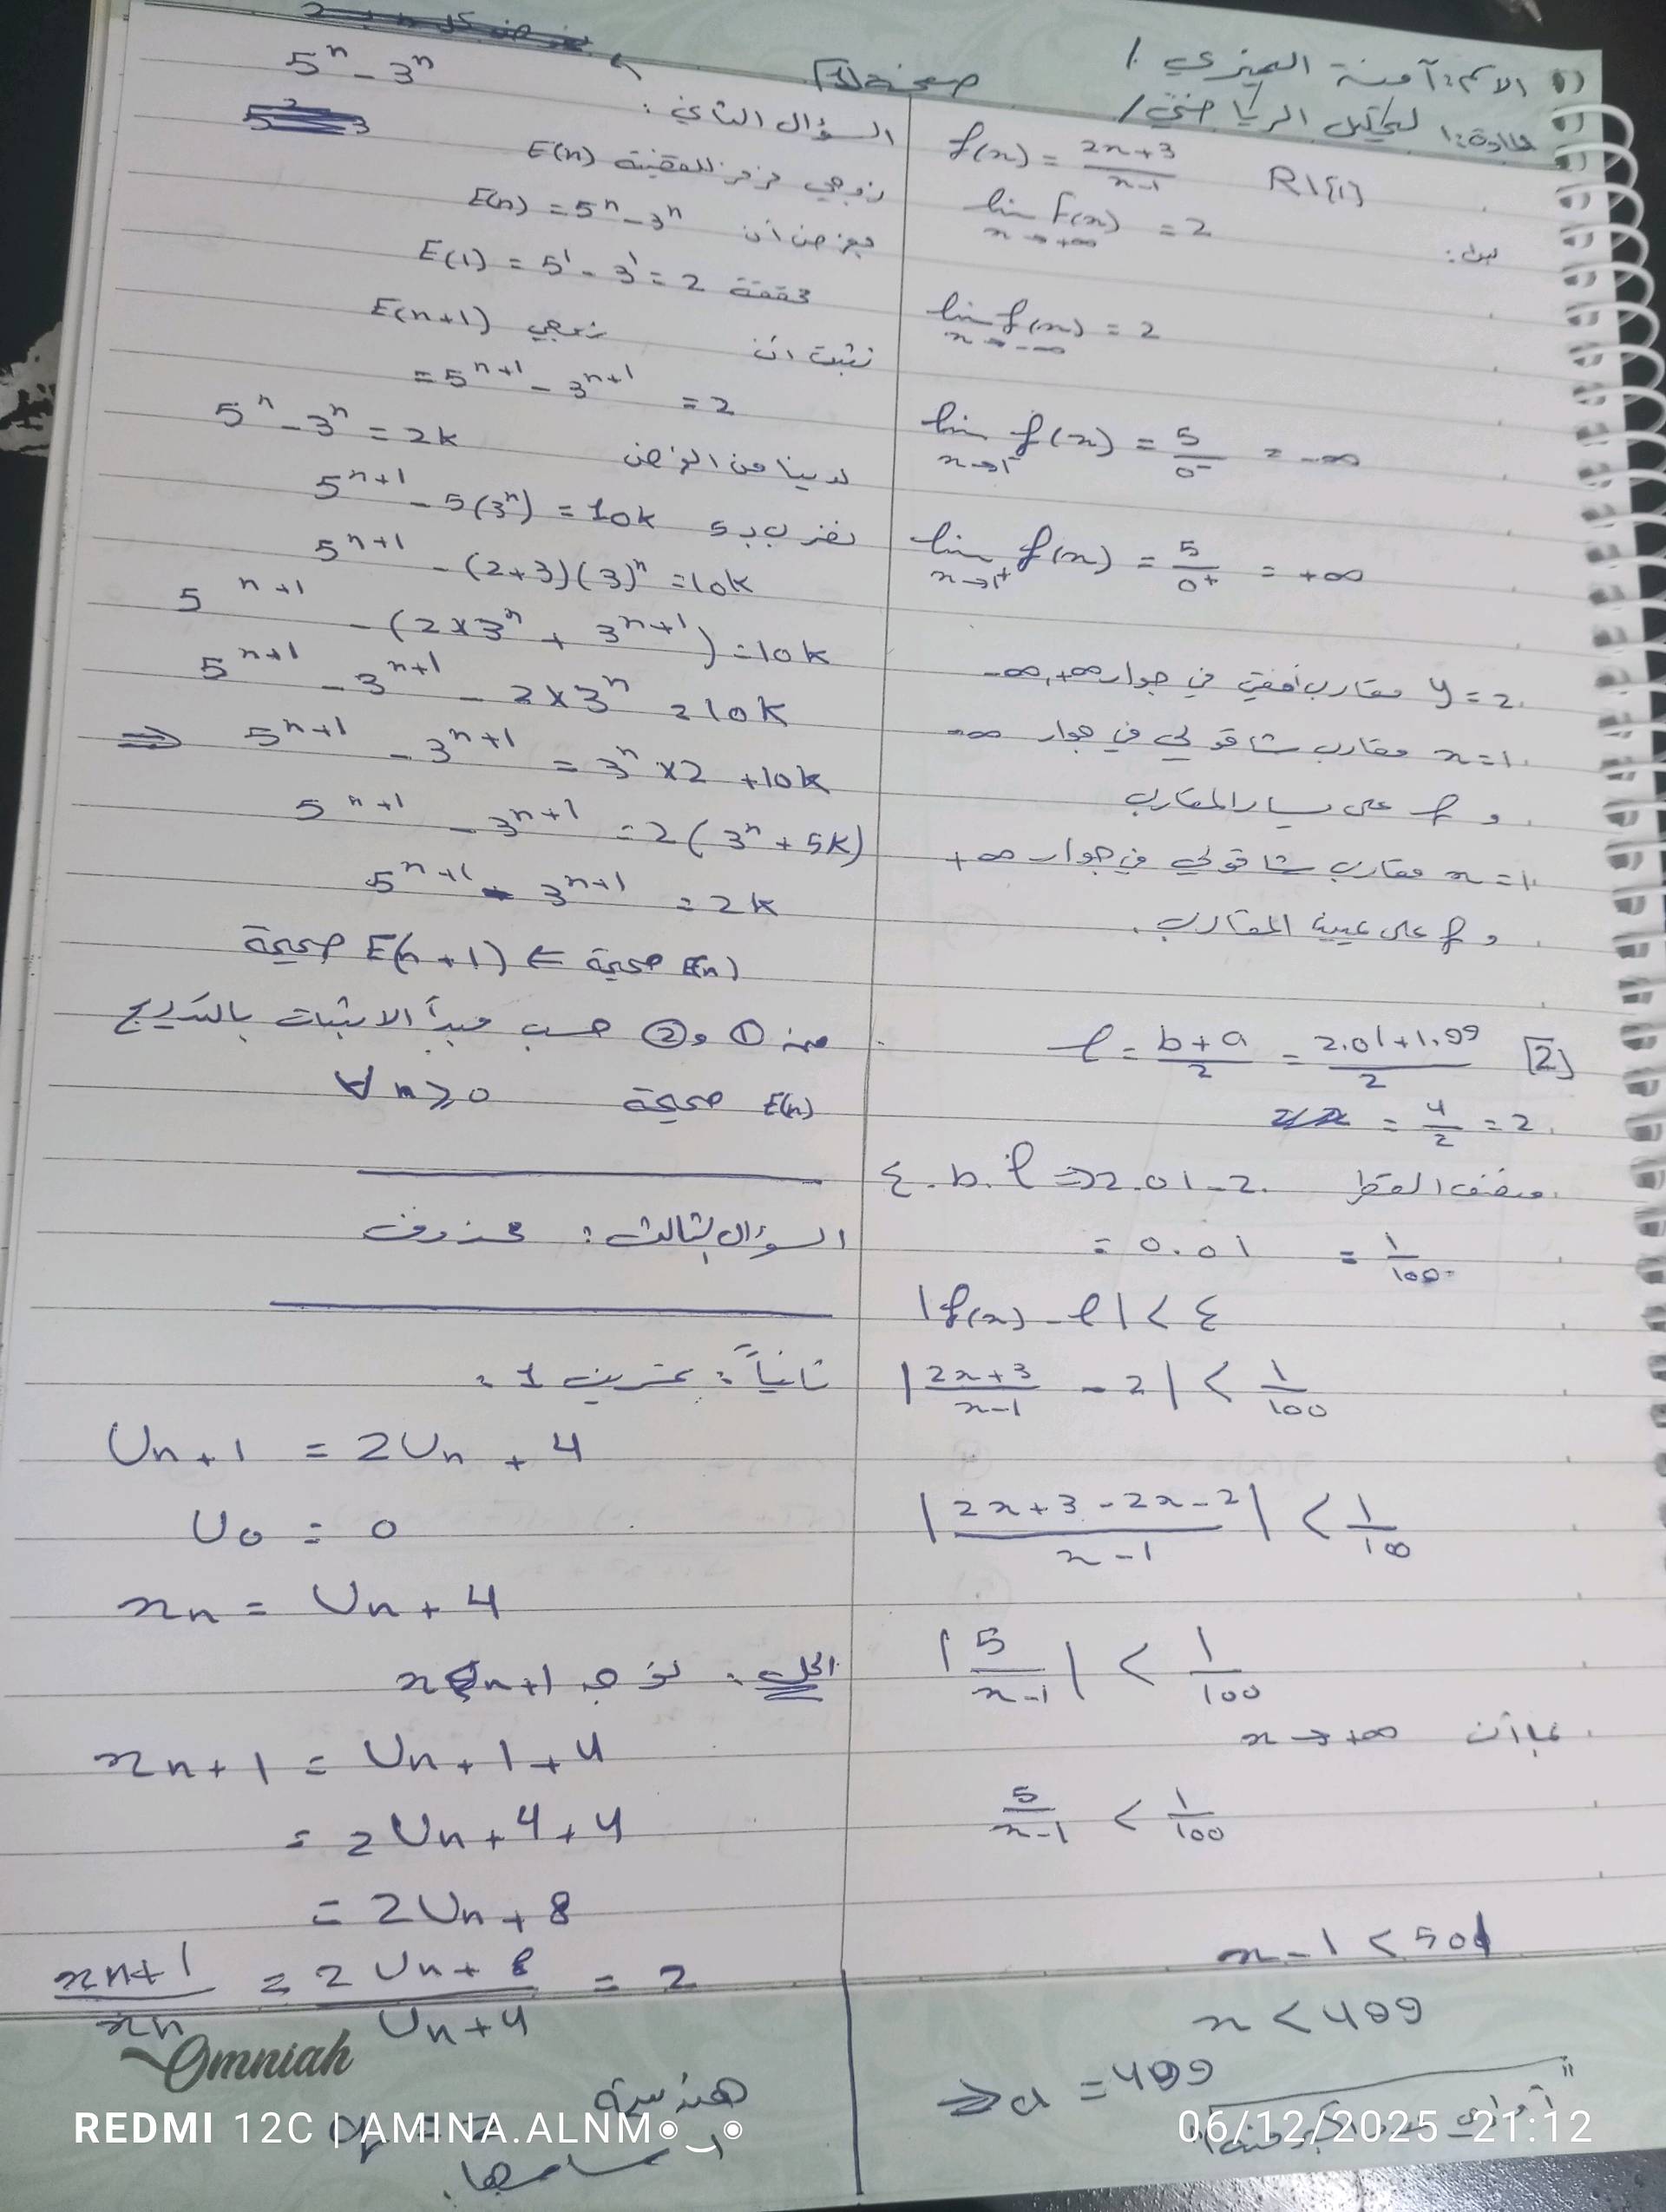 الاسم: آمنة الميزي /
صفحة [1]
مادة: التحليل الرياضي /
f(x) = 2x+3 / x-1    R\{1}
lim f(x) = 2
x→+∞
lim f(x) = 2
x→-∞
lim f(x) = 5/0⁻ = -∞
x→1⁻
lim f(x) = 5/0⁺ = +∞
x→1⁺
y = 2 مقارب أفقي في جوار +∞, -∞
x = 1 مقارب شاقولي في جوار -∞
و f على يسار المقارب
x = 1 مقارب شاقولي في جوار +∞
و f على يمين المقارب.
[2] ℓ = b+a / 2 = 2.01+1.99 / 2
= 4/2 = 2
نصف القطر ε. b. ℓ ⇒ 2.01 - 2
= 0.01 = 1/100
|f(x) - ℓ| < ε
|2x+3 / x-1 - 2| < 1/100
|2x+3-2x-2 / x-1| < 1/100
|5 / x-1| < 1/100
بما أن x→+∞
5 / x-1 < 1/100
x-1 < 501
x < 499
⇒ a = 499
5ⁿ - 3ⁿ
السؤال الثاني:
زوجي نرمز للقضية E(n)
بفرض أن E(n) = 5ⁿ - 3ⁿ
محققة E(1) = 5¹ - 3¹ = 2
نثبت أن زوجي E(n+1)
= 5ⁿ⁺¹ - 3ⁿ⁺¹ = 2
لدينا من الفرض 5ⁿ - 3ⁿ = 2k
نضرب بـ 5 5ⁿ⁺¹ - 5(3ⁿ) = 10k
5ⁿ⁺¹ - (2+3)(3)ⁿ = 10k
5ⁿ⁺¹ - (2×3ⁿ + 3ⁿ⁺¹) = 10k
5ⁿ⁺¹ - 3ⁿ⁺¹ - 2×3ⁿ = 10k
⇒ 5ⁿ⁺¹ - 3ⁿ⁺¹ = 3ⁿ×2 + 10k
5ⁿ⁺¹ - 3ⁿ⁺¹ = 2(3ⁿ + 5k)
5ⁿ⁺¹ - 3ⁿ⁺¹ = 2k
E(n) صحيحة ⇐ E(n+1) صحيحة
من ① و ② حسب مبدأ الاثبات بالتدريج
E(n) صحيحة ∀ n ≥ 0
السؤال الثالث: محذوف
ثانياً: تمرين 1:
Un+1 = 2Un + 4
U0 = 0
xn = Un + 4
الحل: نوجد xn+1
xn+1 = Un+1 + 4
= 2Un + 4 + 4
= 2Un + 8
xn+1 / xn = 2Un + 8 / Un + 4 = 2
هندسية
أساسها
Omniah
REDMI 12C | AMINA.ALNM
06/12/2025 21:12